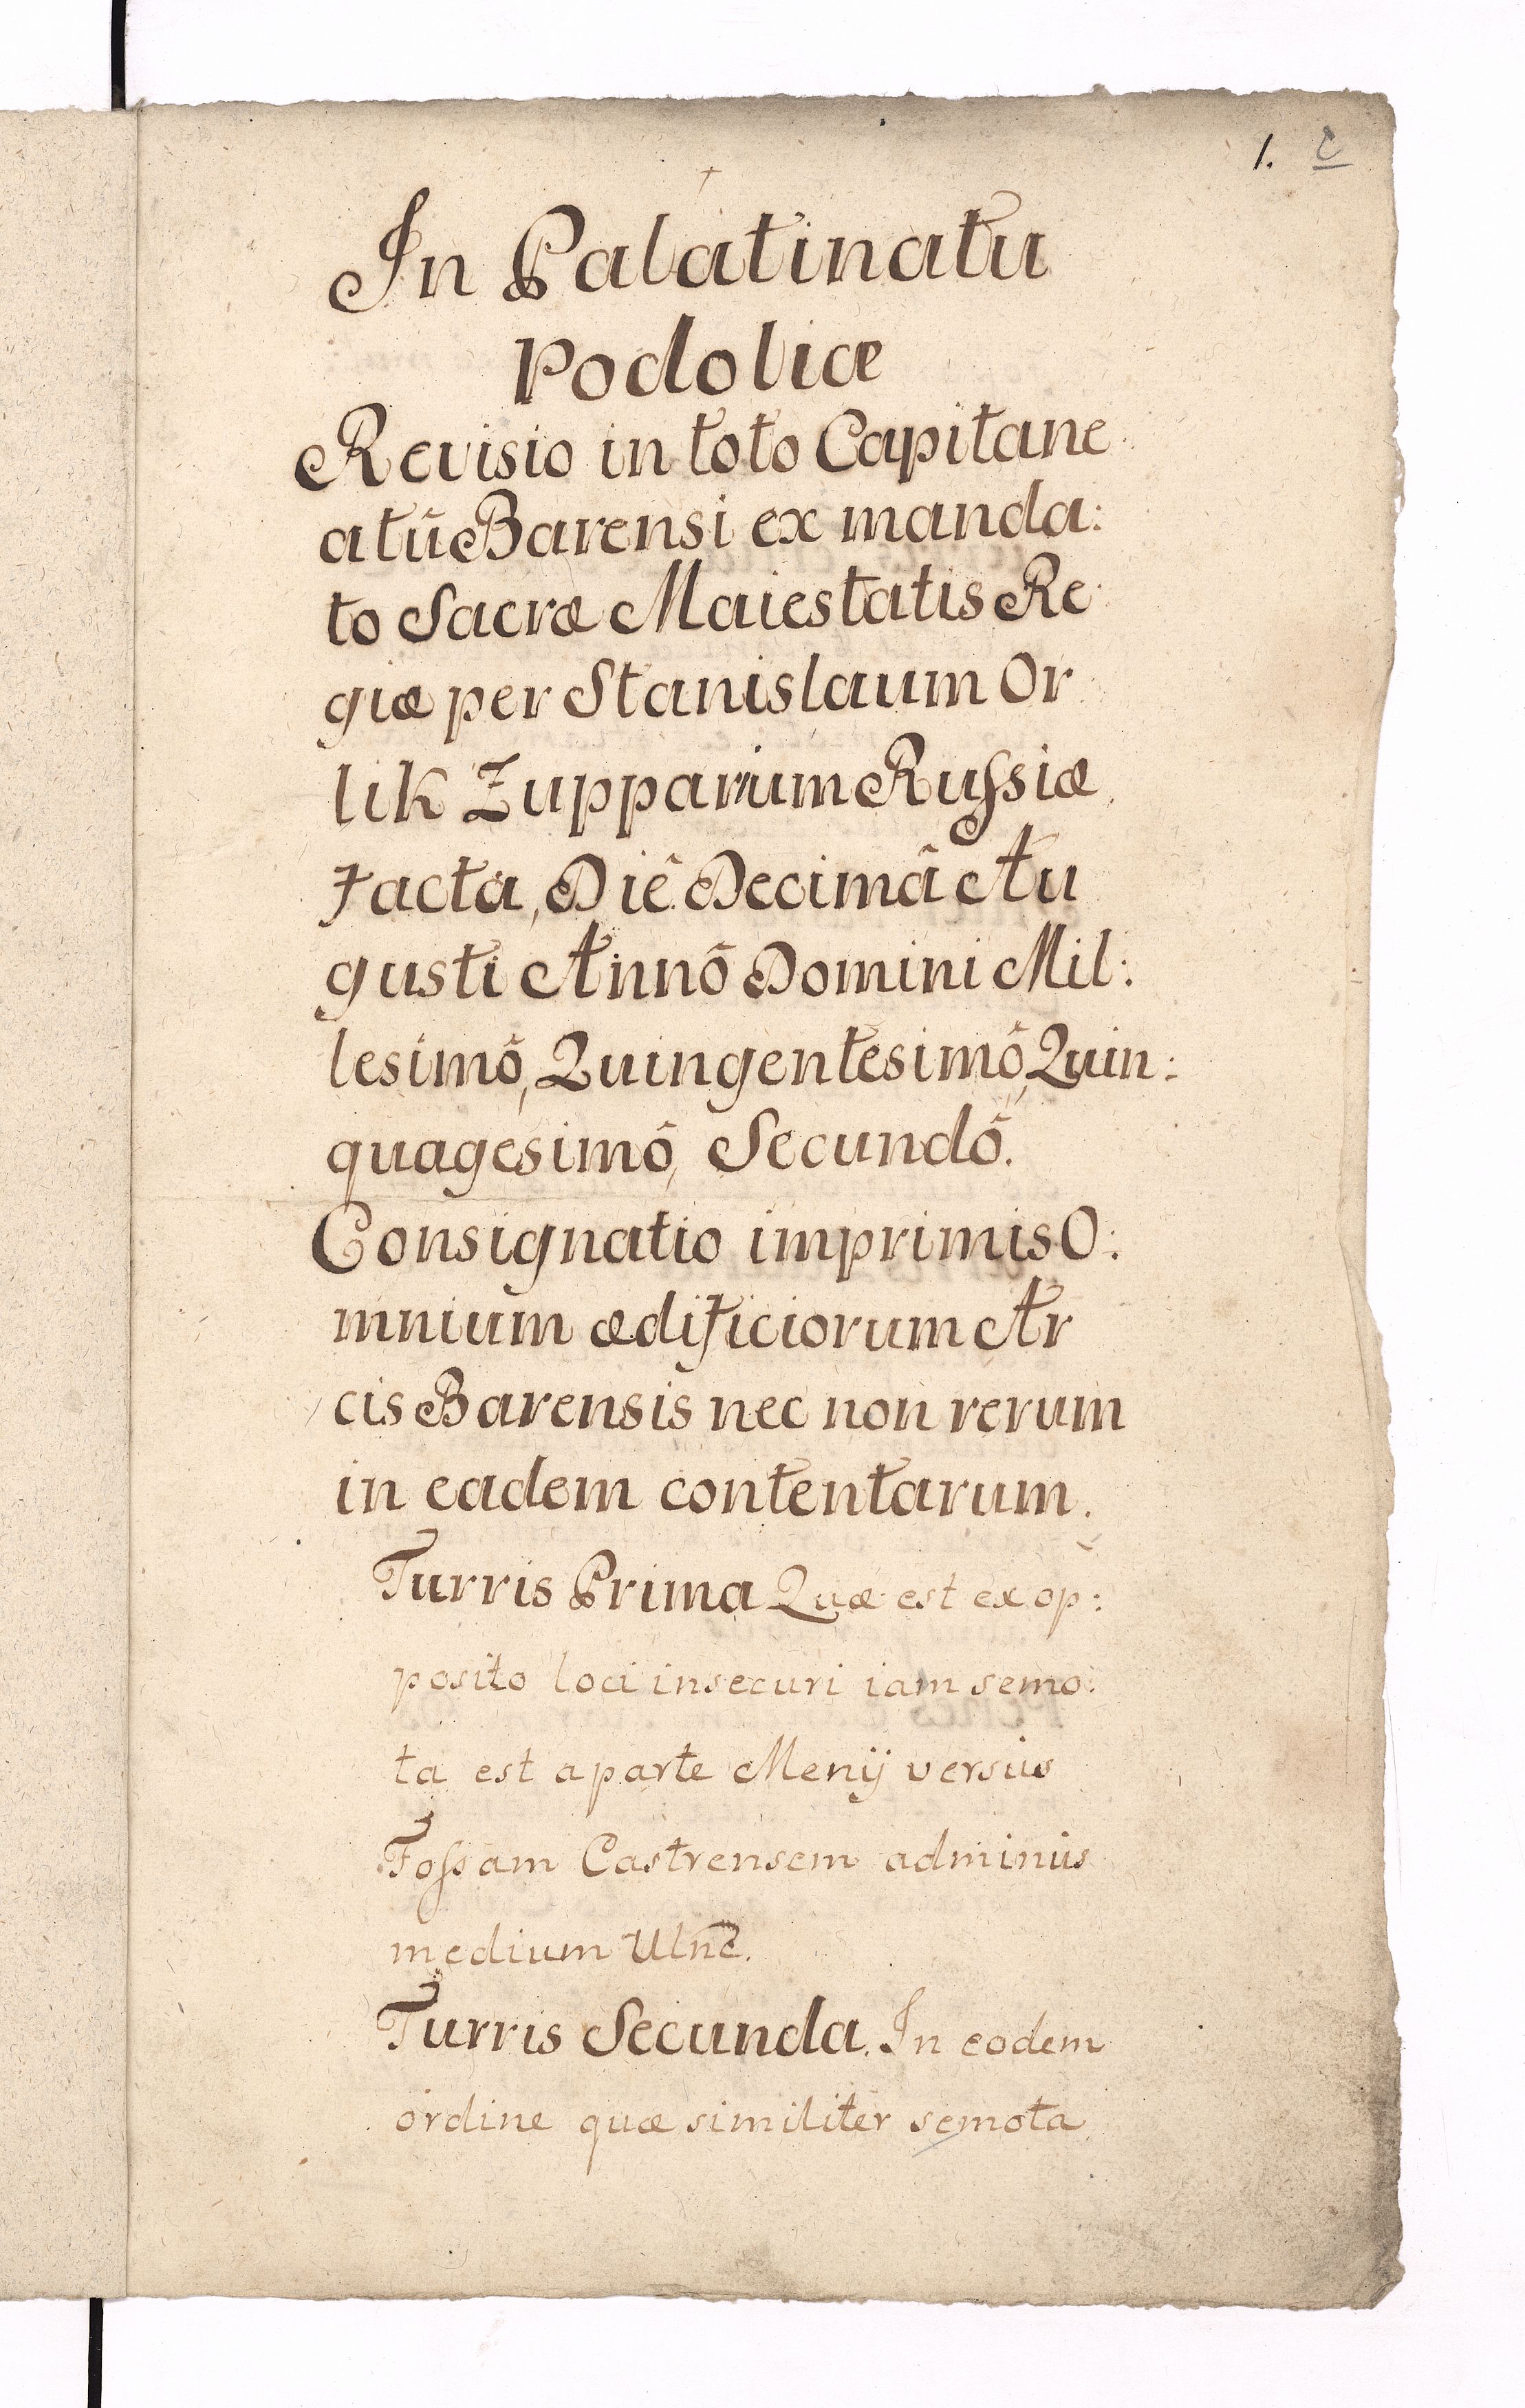 1. C
In Palatinatu
Podoliæ
Revisio in toto Capitane:
atũ Barensi ex manda:
to Sacræ Maiestatis Re:
giæ per Stanislaum Or
lik Zupparium Russiæ
Facta, Diê Decimâ Au
gusti Annô Domini Mil:
lesimô, Quingentesimô, Quin:
quagesimô, Secundô.
Consignatio imprimis O:
mnium ædificiorum Ar
cis Barensis nec non rerum
in eadem contentarum.
Turris Prima Quæ est ex op:
posito loci insecuri iam semo:
ta est a parte Menÿ versus
Fossam Castrensem adminus
medium Ulnæ.
Turris Secunda. In eodem
ordine quæ similiter semota